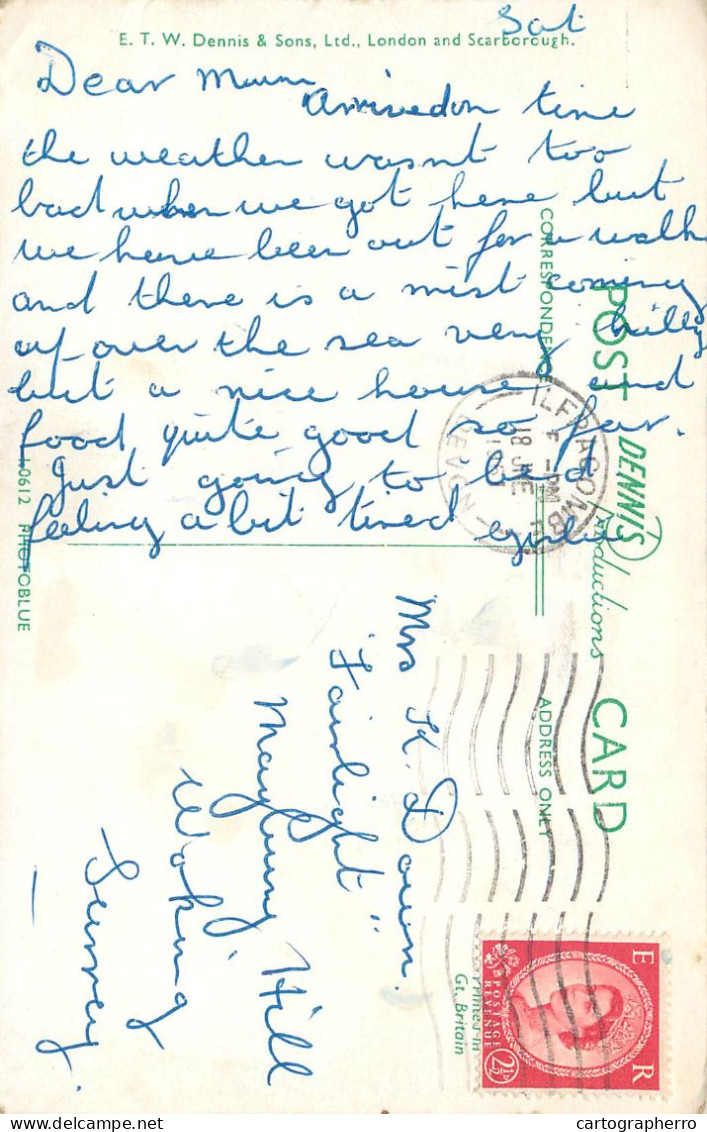 Sat
E. T. W. Dennis & Sons, Ltd., London and Scarborough.
Dear Mum
Arrived on time
the weather wasnt too
bad when we got here but
we have been out for a walk
and there is a mist coming
up over the sea very hilly
but a nice house and
food quite good so far.
Just going to bed
feeling a bit tired
POST CARD
DENNIS
Productions
CORRESPONDENCE
ADDRESS ONLY
ILFRACOMBE
-PM
18 JNE
DEVON
0612 PHOTOBLUE
Mrs K. Down.
"Fairlight"
Hill
Woking
Surrey.
Printed in
Gt. Britain
E R
POSTAGE
REVENUE
2½
cartographerro